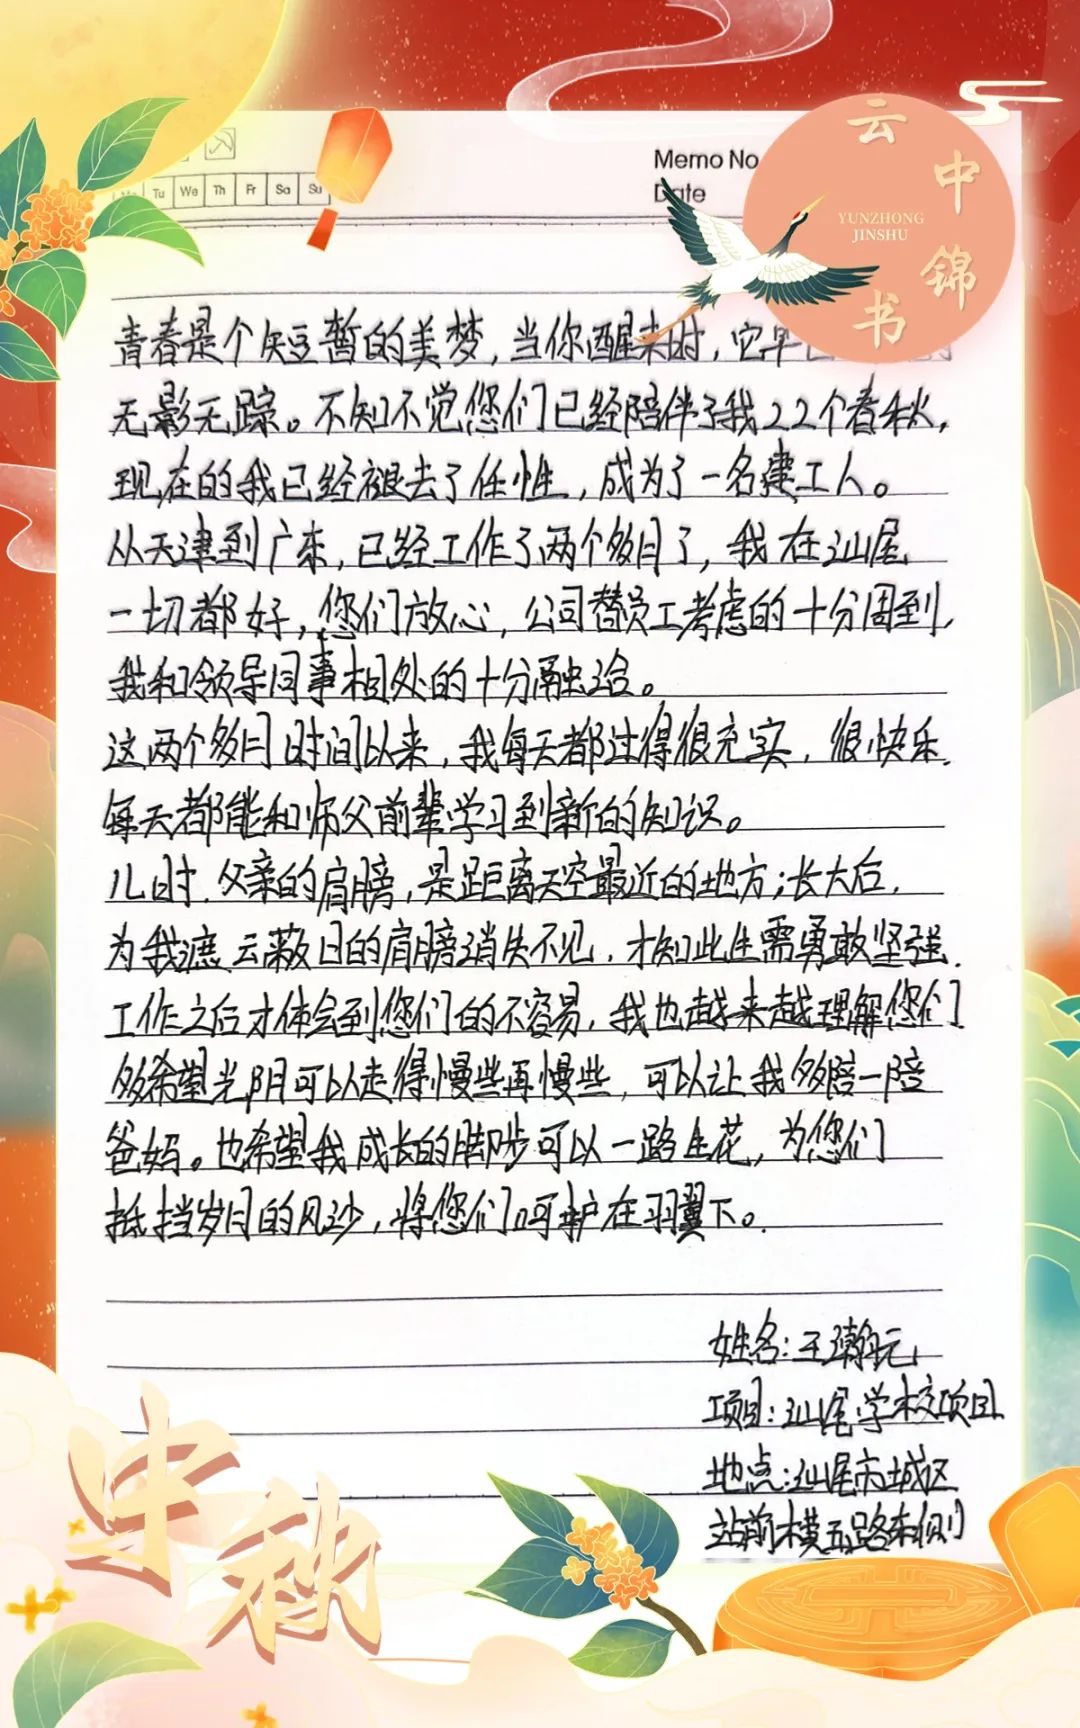 云中锦书
YUNZHONG
JINSHU
Memo No
Date
Tu We Th Fr Sa Su
青春是个短暂的美梦，当你醒来时，它早
无影无踪。不知不觉您们已经陪伴了我22个春秋，
现在的我已经褪去了任性，成为了一名建工人。
从天津到广东，已经工作了两个多月了，我在汕尾
一切都好，您们放心，公司替员工考虑的十分周到，
我和领导同事相处的十分融洽。
这两个多月时间以来，我每天都过得很充实，很快乐．
每天都能和师父前辈学习到新的知识。
儿时．父亲的肩膀，是距离天空最近的地方；长大后．
为我遮云蔽日的肩膀消失不见，才知此生需勇敢坚强．
工作之后才体会到您们的不容易，我也越来越理解您们
多希望光阴可以走得慢些再慢些，可以让我多陪一陪
爸妈。也希望我成长的脚步可以一路生花，为您们
抵挡岁月的风沙，将您们呵护在羽翼下。
姓名：王瀚玩
项目：汕尾学校项目
地点：汕尾市城区
站前横五路东侧
中秋